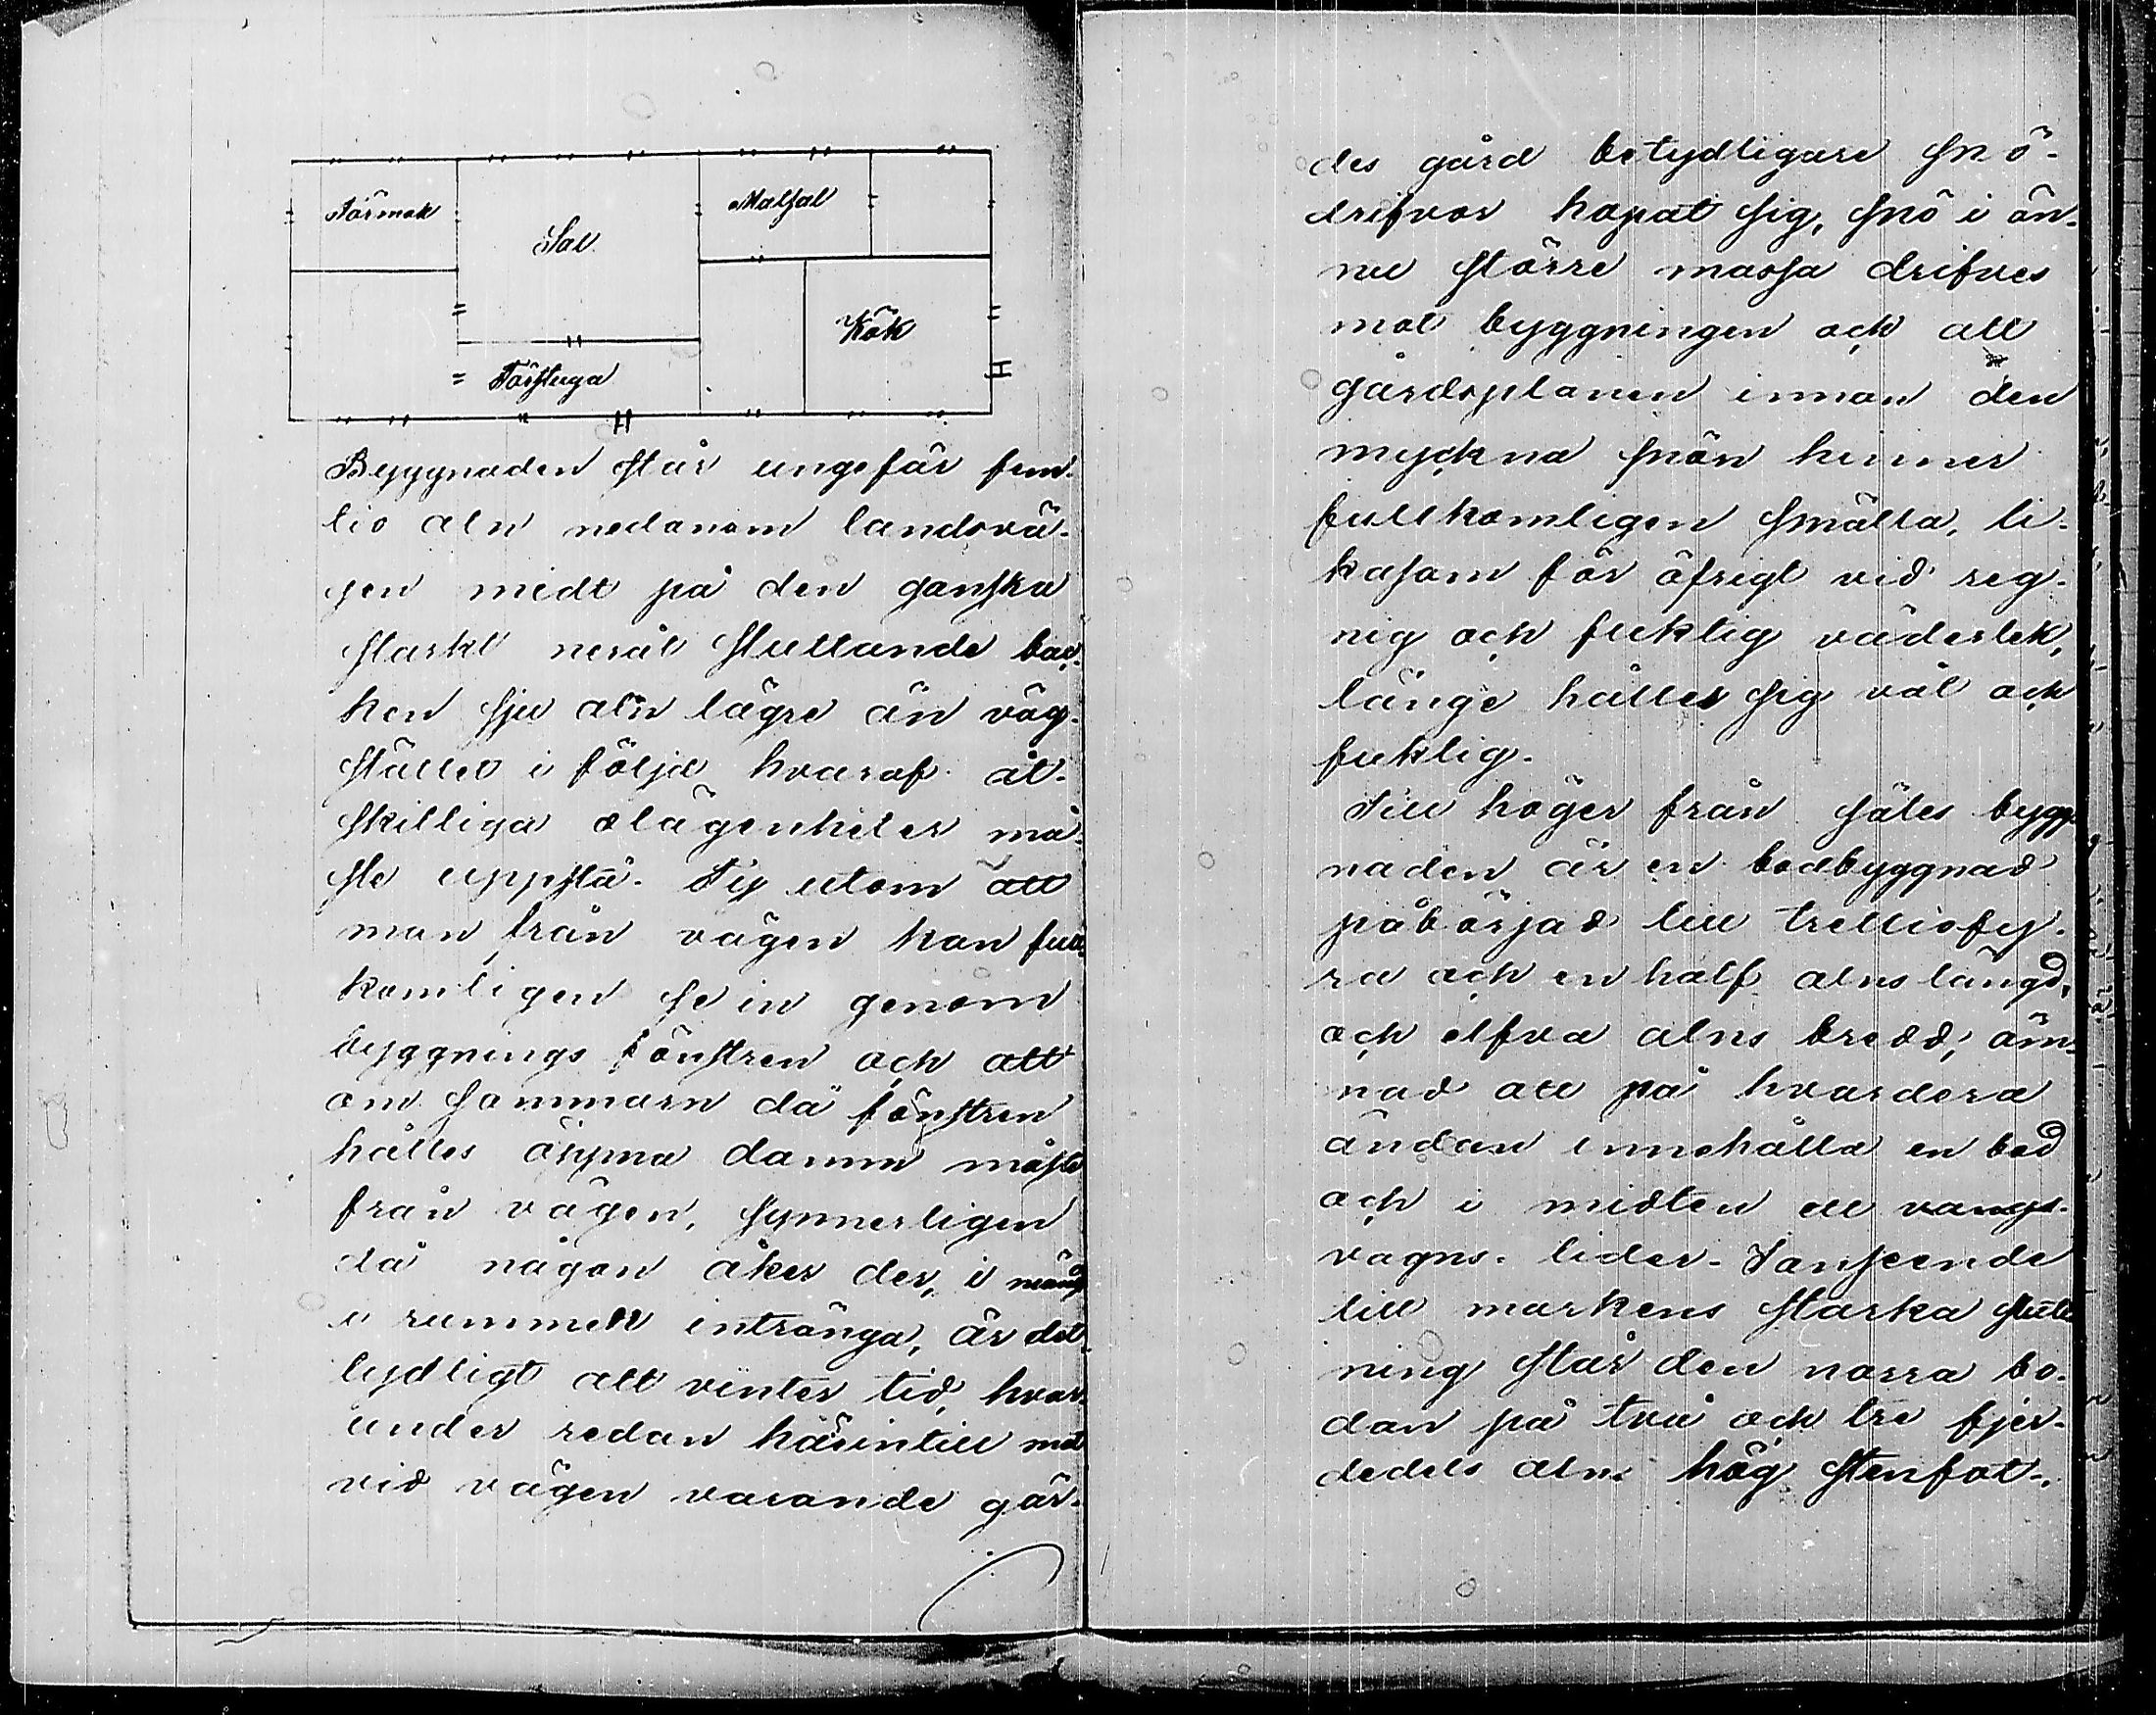 Förmak
Sal
Matsal
Kök
Förstuga
Byggnaden står ungefär fem-
tio aln nedanom landsvä-
gen midt på den ganska
starkt neråt sluttande bac-
ken sju aln lägre än väg-
stället i följd hvaraf åt-
skilliga olägenheter må-
ste uppstå. Ty utom att
man från vägen kan full-
komligen se in genom
byggnings fönstren och att
om sommarn då fönstren
hålles öppna damm måste
från vägen, synnerligen
då någon åker der, i mängd
i rummen intränga, är det
tydligt att vinter tid, hvar-
under redan härintill mot
vid vägen varande går-
des gård betydligare snö-
drifvor hopat sig, snö i än-
nu större massa drifves
mot byggningen och att
gårdsplanen innan den
myckna snön hinner
fullkomligen smälta, li-
kasom för öfrigt vid reg-
nig och fuktig väderlek,
länge håller sig våt och
fuktig.
Till höger från sätes bygg-
naden är en bodbyggnad
påbörjad till trettiofy-
ra och en half alns längd,
och elfva alns bredd, äm-
nad att på hvardera
ändan innehålla en bod
och i midten ett vangs-
vagns-lider. I anseende
till markens starka slutt-
ning står den norra bo-
dan på två och tre fjer-
dedels alns hög stenfot.